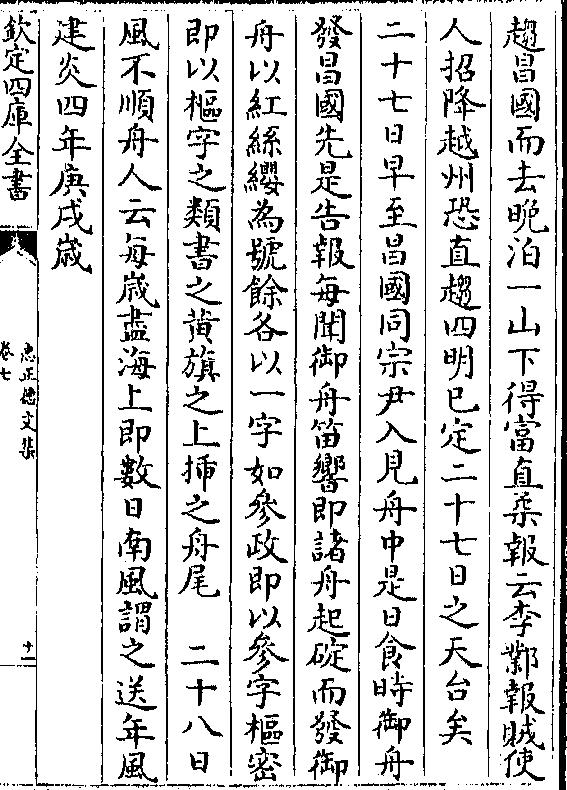 趨昌國而去晚泊一山下得富直柔報云李鄴報賊使
人招降越州恐直趨四明已定二十七日之天台矣
二十七日早至昌國同宗尹入見舟中是日食時御舟
發昌國先是告報每聞御舟笛響即諸舟起碇而發御
舟以紅絲纓為號餘各以一字如參政即以參字樞密
即以樞字之類書之黄旗之上揷之舟尾　二十八日
風不順舟人云每嵗盡海上即數日南風謂之送年風
建炎四年庚戌嵗
欽定四庫全書
忠正德文集
卷七
十一